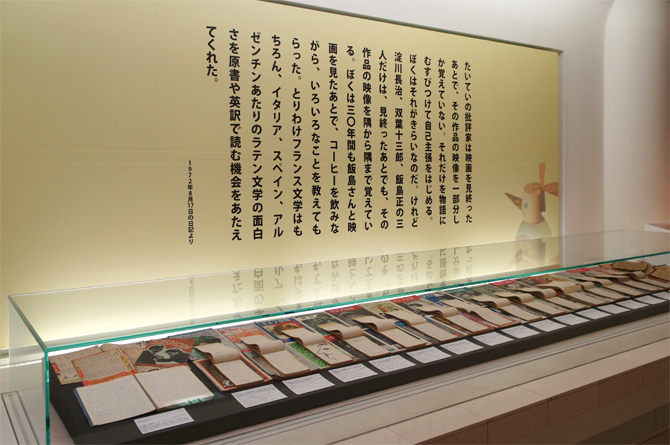 たいていの批評家は映画を見終った
あとで、その作品の映像を一部分し
か覚えていない。それだけを物語に
むすびつけて自己主張をはじめる。
ぼくはそれがきらいなのだ。けれど
淀川長治、双葉十三郎、飯島正の三
人だけは、見終ったあとでも、その
作品の映像を隅から隅まで覚えてい
る。ぼくは三〇年間も飯島さんと映
画を見たあとで、コーヒーを飲みな
がら、いろいろなことを教えても
らった。とりわけフランス文学はも
ちろん、イタリア、スペイン、アル
ゼンチンあたりのラテン文学の面白
さを原書や英訳で読む機会をあたえ
てくれた。
1972年8月17日の日記より